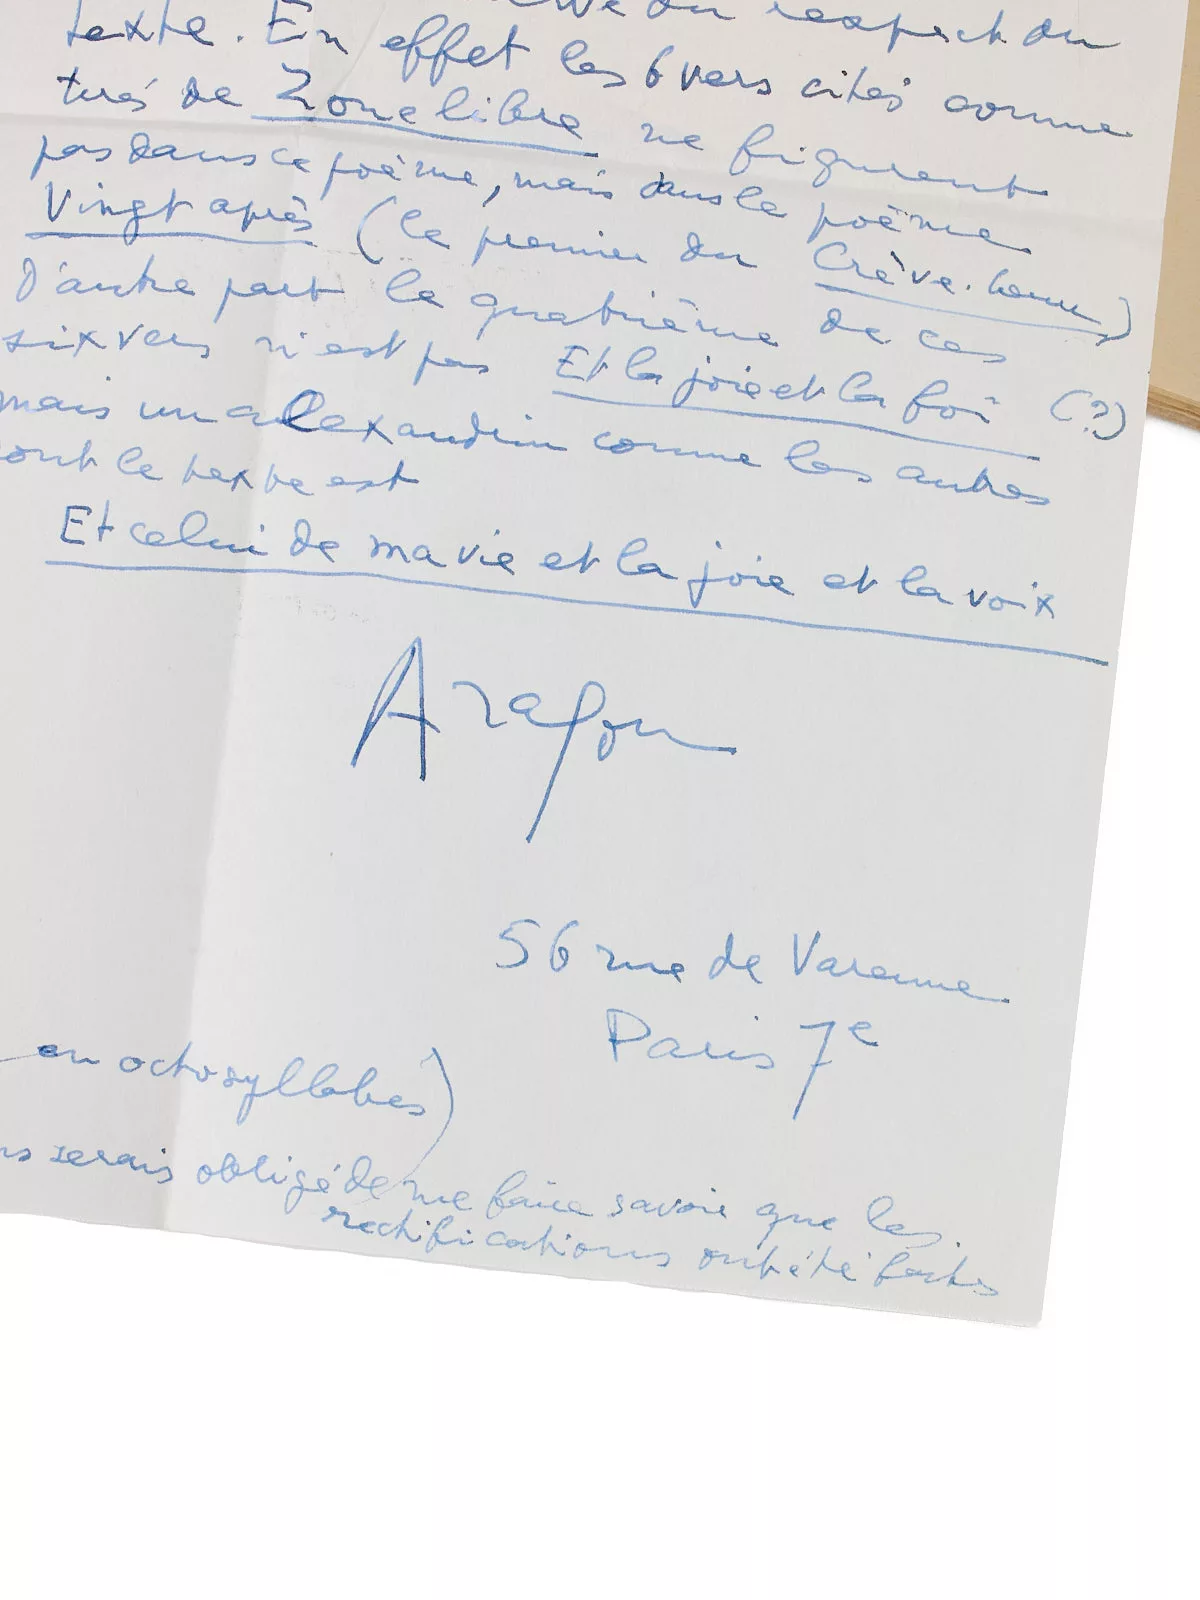 du respect du
texte. En effet les 6 vers cités comme
tirés de Zone libre ne figurent
pas dans ce poème, mais dans le poème
Vingt après (le premier du Crève-Cœur)
D'autre part le quatrième de ces
six vers n'est pas Et la joie et la foi (?)
mais un alexandrin comme les autres
ont le texte est
Et celui de ma vie et la joie et la voix
Aragon
56 rue de Varenne
Paris 7e
en octosyllabes)
serais obligé de me faire savoir que les
rectifications ont été faites